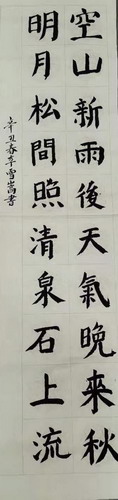 空山新雨後天氣晚來秋
明月松間照清泉石上流
辛丑春李雪嵩書